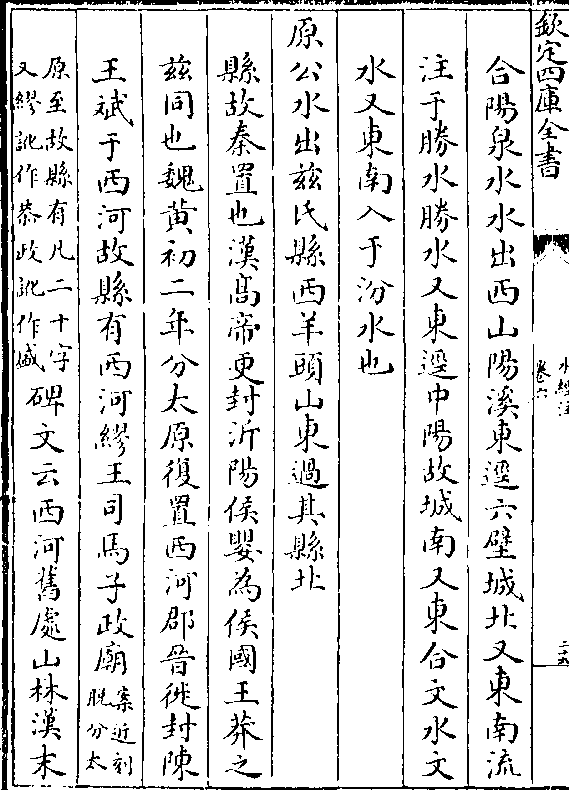 欽定四庫全書
水經注
卷六
合陽泉水水出西山陽溪東逕六壁城北又東南流
注于勝水勝水又東逕中陽故城南又東合文水文
水又東南入于汾水也
原公水出兹氏縣西羊頭山東過其縣北
縣故秦置也漢髙帝更封沂陽侯嬰為侯國王莽之
兹同也魏黄初二年分太原復置西河郡晉徙封陳
王斌于西河故縣有西河繆王司馬子政廟案近刻脱分太
原至故縣有凡二十字又繆訛作恭政訛作盛碑文云西河舊處山林漢末